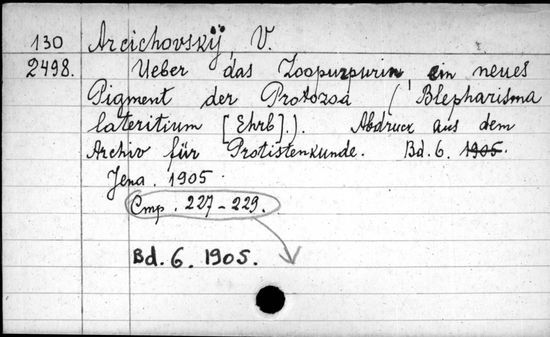 130 Arcichovskÿ, V.
2498. Ueber das Zoopurpurin, ein neues
Pigment der Protozoa (Blepharisma
lateritium [Ehrb].). Abdruck aus dem
Archiv für Protistenkunde. Bd. 6. 1905.
Jena. 1905.
Стр. 227-229.
Bd. 6. 1905.